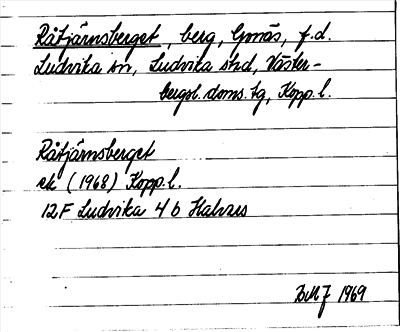 Råtjärnsberget, berg, Gonäs, f.d.
Ludvika sn, Ludvika stad, Väster-
bergsl. doms. tg, Kopp. l.
Råtjärnsberget
ek (1968) Kopp. l.
12F Ludvika 4 b Halvars
BMJ 1969